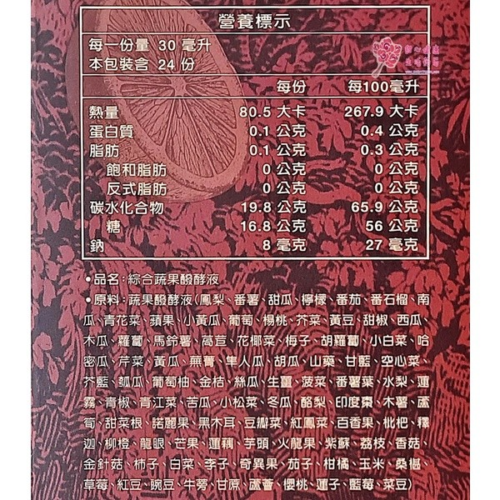 營養標示
每一份量 30 毫升
本包裝含 24 份
每份 每100毫升
熱量 80.5 大卡 267.9 大卡
蛋白質 0.1 公克 0.4 公克
脂肪 0.1 公克 0.3 公克
飽和脂肪 0 公克 0 公克
反式脂肪 0 公克 0 公克
碳水化合物 19.8 公克 65.9 公克
糖 16.8 公克 56 公克
鈉 8 毫克 27 毫克
•品名:綜合蔬果醱酵液
•原料:蔬果醱酵液(鳳梨、番薯、甜瓜、檸檬、番茄、番石榴、南
瓜、青花菜、蘋果、小黃瓜、葡萄、楊桃、芥菜、黃豆、甜椒、西瓜、
木瓜、蘿蔔、馬鈴薯、萵苣、花椰菜、梅子、胡蘿蔔、小白菜、哈
密瓜、芹菜、黃瓜、蕪菁、隼人瓜、胡瓜、山藥、甘藍、空心菜、
芥藍、瓠瓜、葡萄柚、金桔、絲瓜、生薑、菠菜、番薯葉、水梨、蓮
霧、青椒、青江菜、苦瓜、小松菜、冬瓜、酪梨、印度棗、木薯、蘆
筍、甜菜根、諾麗果、黑木耳、豆瓣菜、紅鳳菜、百香果、枇杷、釋
迦、柳橙、龍眼、芒果、蓮藕、芋頭、火龍果、紫蘇、荔枝、香菇、
金針菇、柿子、白菜、李子、奇異果、茄子、柑橘、玉米、桑椹、
草莓、紅豆、豌豆、牛蒡、甘蔗、蘆薈、櫻桃、蓮子、藍莓、菜豆)